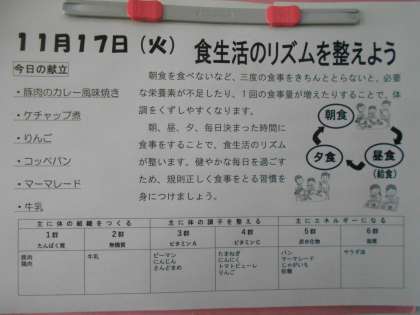 11月17日（火） 食生活のリズムを整えよう
今日の献立
・豚肉のカレー風味焼き
・ケチャップ煮
・りんご
・コッペパン
・マーマレード
・牛乳
朝食を食べないなど、三度の食事をきちんととらないと、必要
な栄養素が不足したり、1回の食事量が増えたりすることで、体
調をくずしやすくなります。
朝、昼、夕、毎日決まった時間に
食事をすることで、食生活のリズム
が整います。健やかな毎日を過ごす
ため、規則正しく食事をとる習慣を
身につけましょう。
朝食
夕食
昼食
(給食)
主に体の組織をつくる 主に体の調子を整える 主にエネルギーになる
1群 2群 3群 4群 5群 6群
たんぱく質 無機質 ビタミンA ビタミンC 炭水化物 脂質
豚肉 牛乳 ピーマン たまねぎ パン サラダ油
鶏肉 にんじん にんにく マーマレード
さんどまめ トマトピューレ じゃがいも
りんご 砂糖